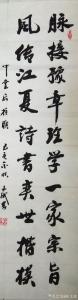 脉接豫章理学一家宗旨
风传江夏诗书奕世楷模